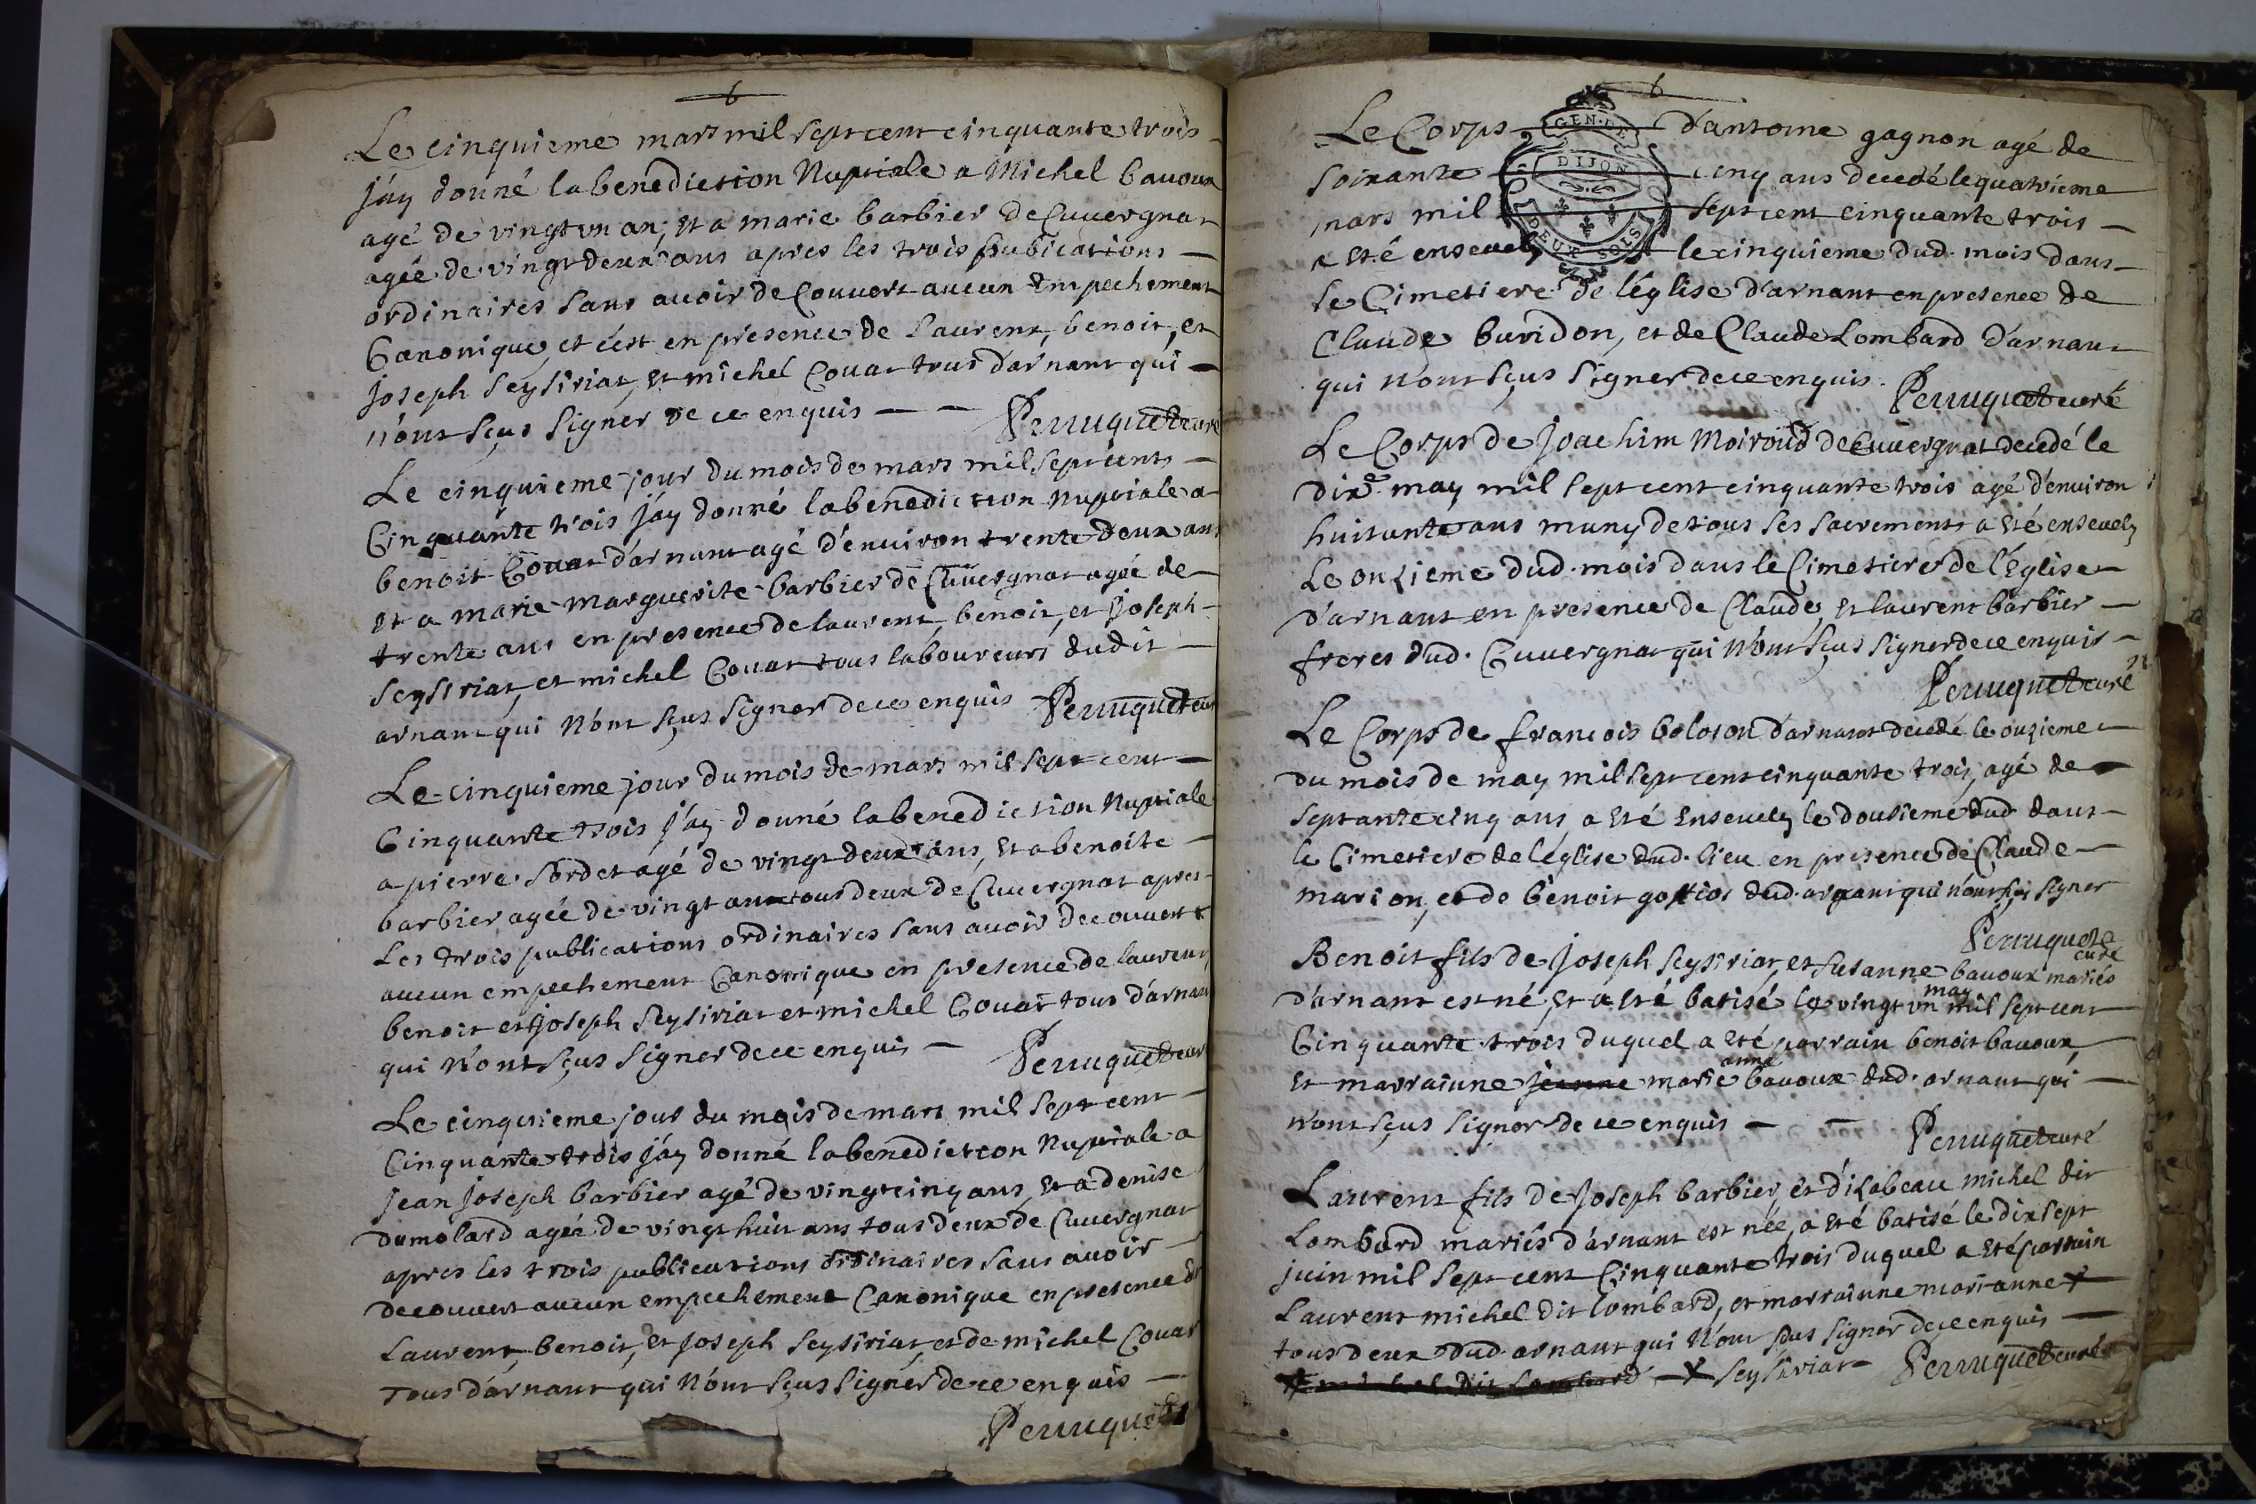 6
Le cinquieme mars mil sept cent cinquante trois
j'ay donné la benediction Nuptiale a Michel bavoux
agé de vingt un an, et a marie barbier de Cuvergnat
agée de vingt deux ans apres les trois publications
ordinaires sans avoir deCouvert aucun Empechement
Canonique, et c'est en presence de Laurent, benoit, et
joseph Seysiriat, et michel Couat tous d'arnant qui
n'ont sçus signer de ce enquis Perruquet curé
Le cinquieme jour du mois de mars mil sept cents
Cinquante trois j'ay donné la benediction nuptiale a
benoit Couat d'arnant agé d'environ trente deux ans
et a marie marguerite barbier de Cuvergnat agée de
trente ans en presence de laurent, benoit, et joseph
seysiriat, et michel Couat tous laboureurs dudit
arnant qui N'ont sçus signer de ce enquis Perruquet curé
Le cinquieme jour du mois de mars mil sept cent
Cinquante trois j'ay donné la benediction Nuptiale
a pierre Sordet agé de vingt deux ans, et a benoite
barbier agée de vingt ans tous deux de Cuvergnat apres
Les trois publications ordinaires sans avoir decouvert
aucun empechement Canonique en presence de laurent
benoit et joseph Seysiriat et michel Couat tous d'arnant
qui N'ont sçus signer de ce enquis Perruquet curé
Le cinquieme jour du mois de mars mil sept cent
Cinquante trois j'ay donné la benediction Nuptiale a
jean joseph barbier agé de vingt cinq ans, et a denise
dumolard agée de vingt huit ans tous deux de Cuvergnat
apres les trois publications ordinaires sans avoir
decouvert aucun empechement Canonique en presence de
Laurent, benoit, et joseph Seysiriat, et de michel Couat
Tous d'arnant qui N'ont sçus signér de ce enquis
Perruquet
6
GEN. DE
DIJON
DEUX SOLS
Le Corps d'antoine gagnon agé de
Soixante cinq ans decedé le quatrieme
mars mil sept cent cinquante trois
a eté ensevely le cinquieme dud. mois dans
le Cimetiere de l'église d'arnant en presence de
Claude buridon, et de Claude Lombard d'arnant
qui n'ont sçus signer de ce enquis.
Perruquet curé
Le Corps de joachim Moiroud de Cuvergnat decedé le
dixe. may mil sept cent cinquante trois agé d'environ
huitante ans muny de tous ses sacrements a eté ensevely
Le onzieme dud. mois dans le Cimetiere de l'Église
d'arnant en presence de Claude, et laurent barbier
freres dud. Cuvergnat qui N'ont sçus signer de ce enquis
Perruquet curé
Le Corps de francois boloson d'arnant decedé le onzieme
du mois de may mil sept cent cinquante trois, agé de
septante cinq ans, a eté ensevely le dousieme dud. dans
le Cimetiere de l'église dud. lieu en presence de Claude
marion, et de benoit dud. arnant qui n'ont sçus signer
Perruquet
curé
Benoit fils de joseph Seysiriat, et susanne bavoux mariés
d'arnant est né, et a eté batisé le vingt un may mil sept cent
Cinquante trois duquel a eté parrain benoit bavoux,
et marrainne jeanne marie anne bavoux dud. arnant qui
N'ont sçus signer de ce enquis
Perruquet curé
Laurent fils de joseph barbier, et d'isabeau michel dit
Lombard mariés d'arnant est née, a eté batisé le dix sept
juin mil sept cent Cinquante trois duquel a eté parrain
Laurent michel dit lombard, et marrainne marianne X
tous deux dud. arnant qui N'ont sçus signer de ce enquis
michel dit Lombard X seysiriat Perruquet curé